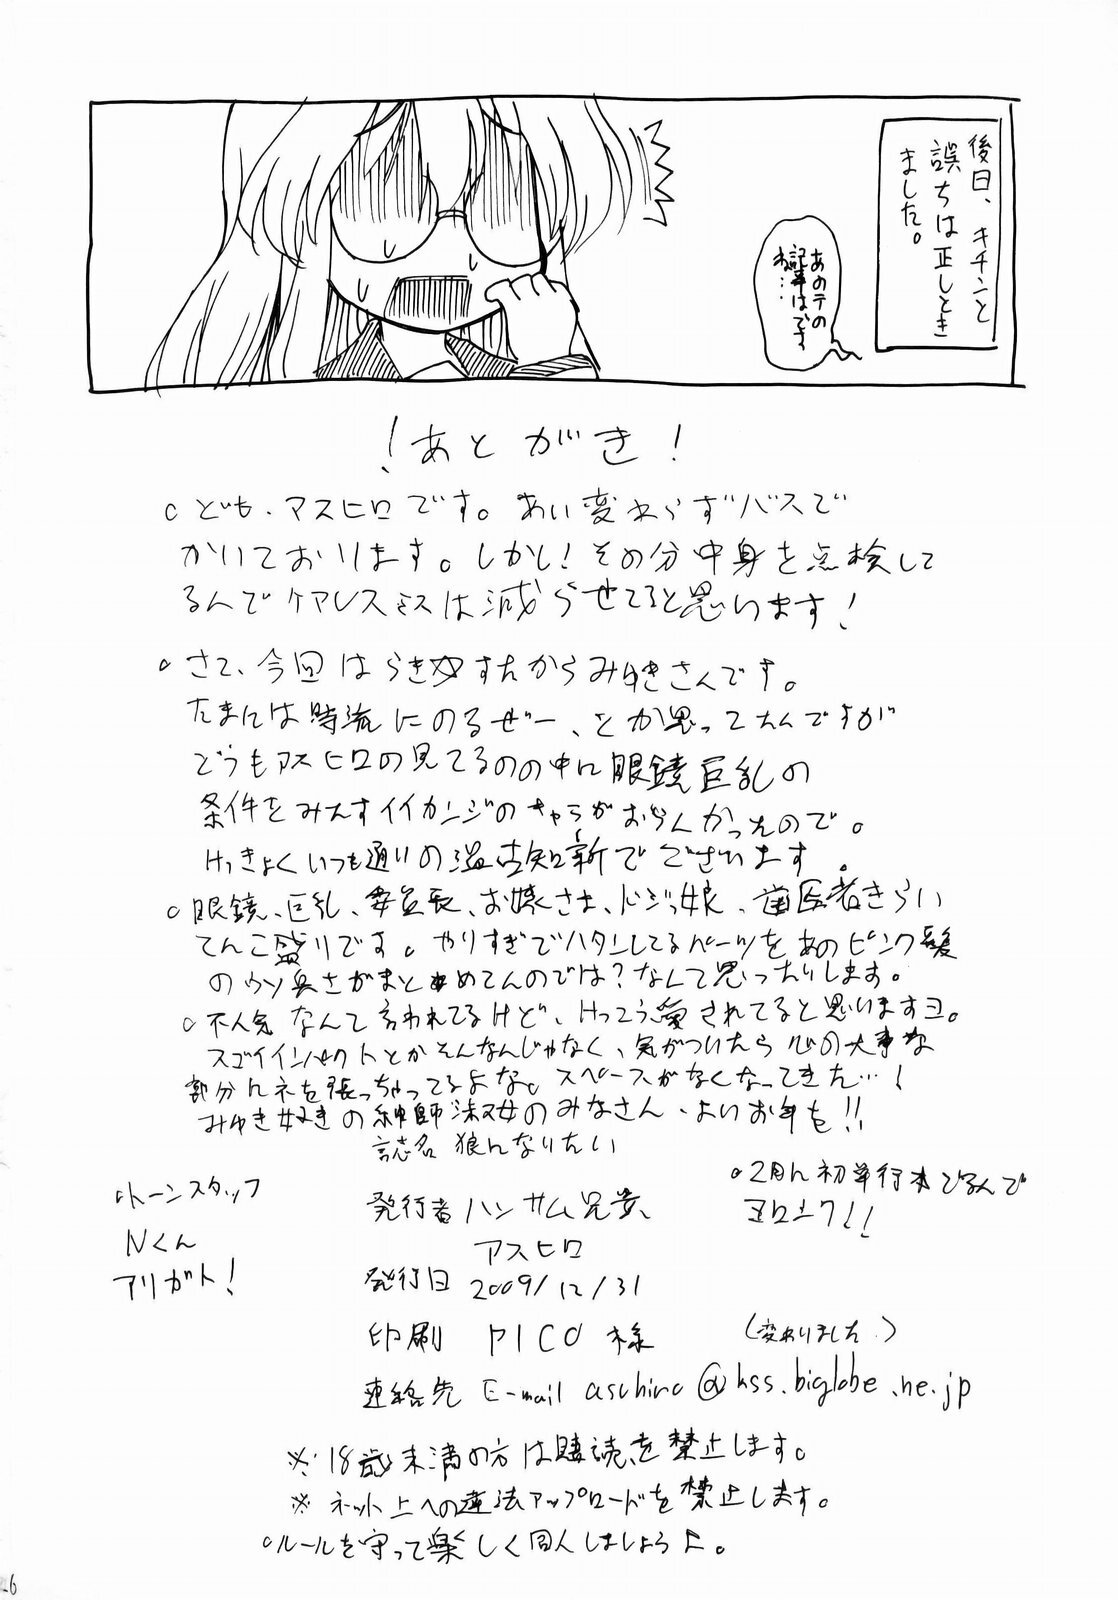 後日、キチンと
誤ちは正しとき
ました。
あのテの
記事はです
ね…
！あとがき！
○ども、アスヒロです。あい変わらずバスで
かいております。しかし！その分中身を点検して
るんでケアレスミスは減らせてると思います！
○さて、今回はらき☆すたからみゆきさんです。
たまには時流にのるぜー、とか思ってたんですが
どうもアスヒロの見てるのの中に眼鏡巨乳の
条件をみたすイイカンジのキャラがおらんかったので。
けっきょくいつも通りの温古知新でございます。
○眼鏡、巨乳、委員長、お嬢さま、ドジっ娘、歯医者きらい
てんこ盛りです。やりすぎでハタンしてるパーツをあのピンク髪
のウソ臭さがまとめてんのでは？なんて思ったりします。
○不人気なんて言われてるけど、けっこう愛されてると思いますヨ。
スゴイインパクトとかそんなんじゃなく、気がついたら心の大事な
部分にネを張っちゃってるよな。スペースがなくなってきた…！
みゆき好きの紳師淑女のみなさん、よいお年を!!
誌名 狼になりたい
○トーンスタッフ
Nくん
アリガト！
発行者 ハンサム兄貴、
アスヒロ
○2月に初単行本でるんで
ヨロシク！！
発行日 2009/12/31
印刷 PICO 様
(変わりました。)
連絡先 E-mail asuhiro@kss.biglobe.ne.jp
※18歳未満の方は購読を禁止します。
※ネット上への違法アップロードを禁止します。
○ルールを守って楽しく同人しましょうよ。